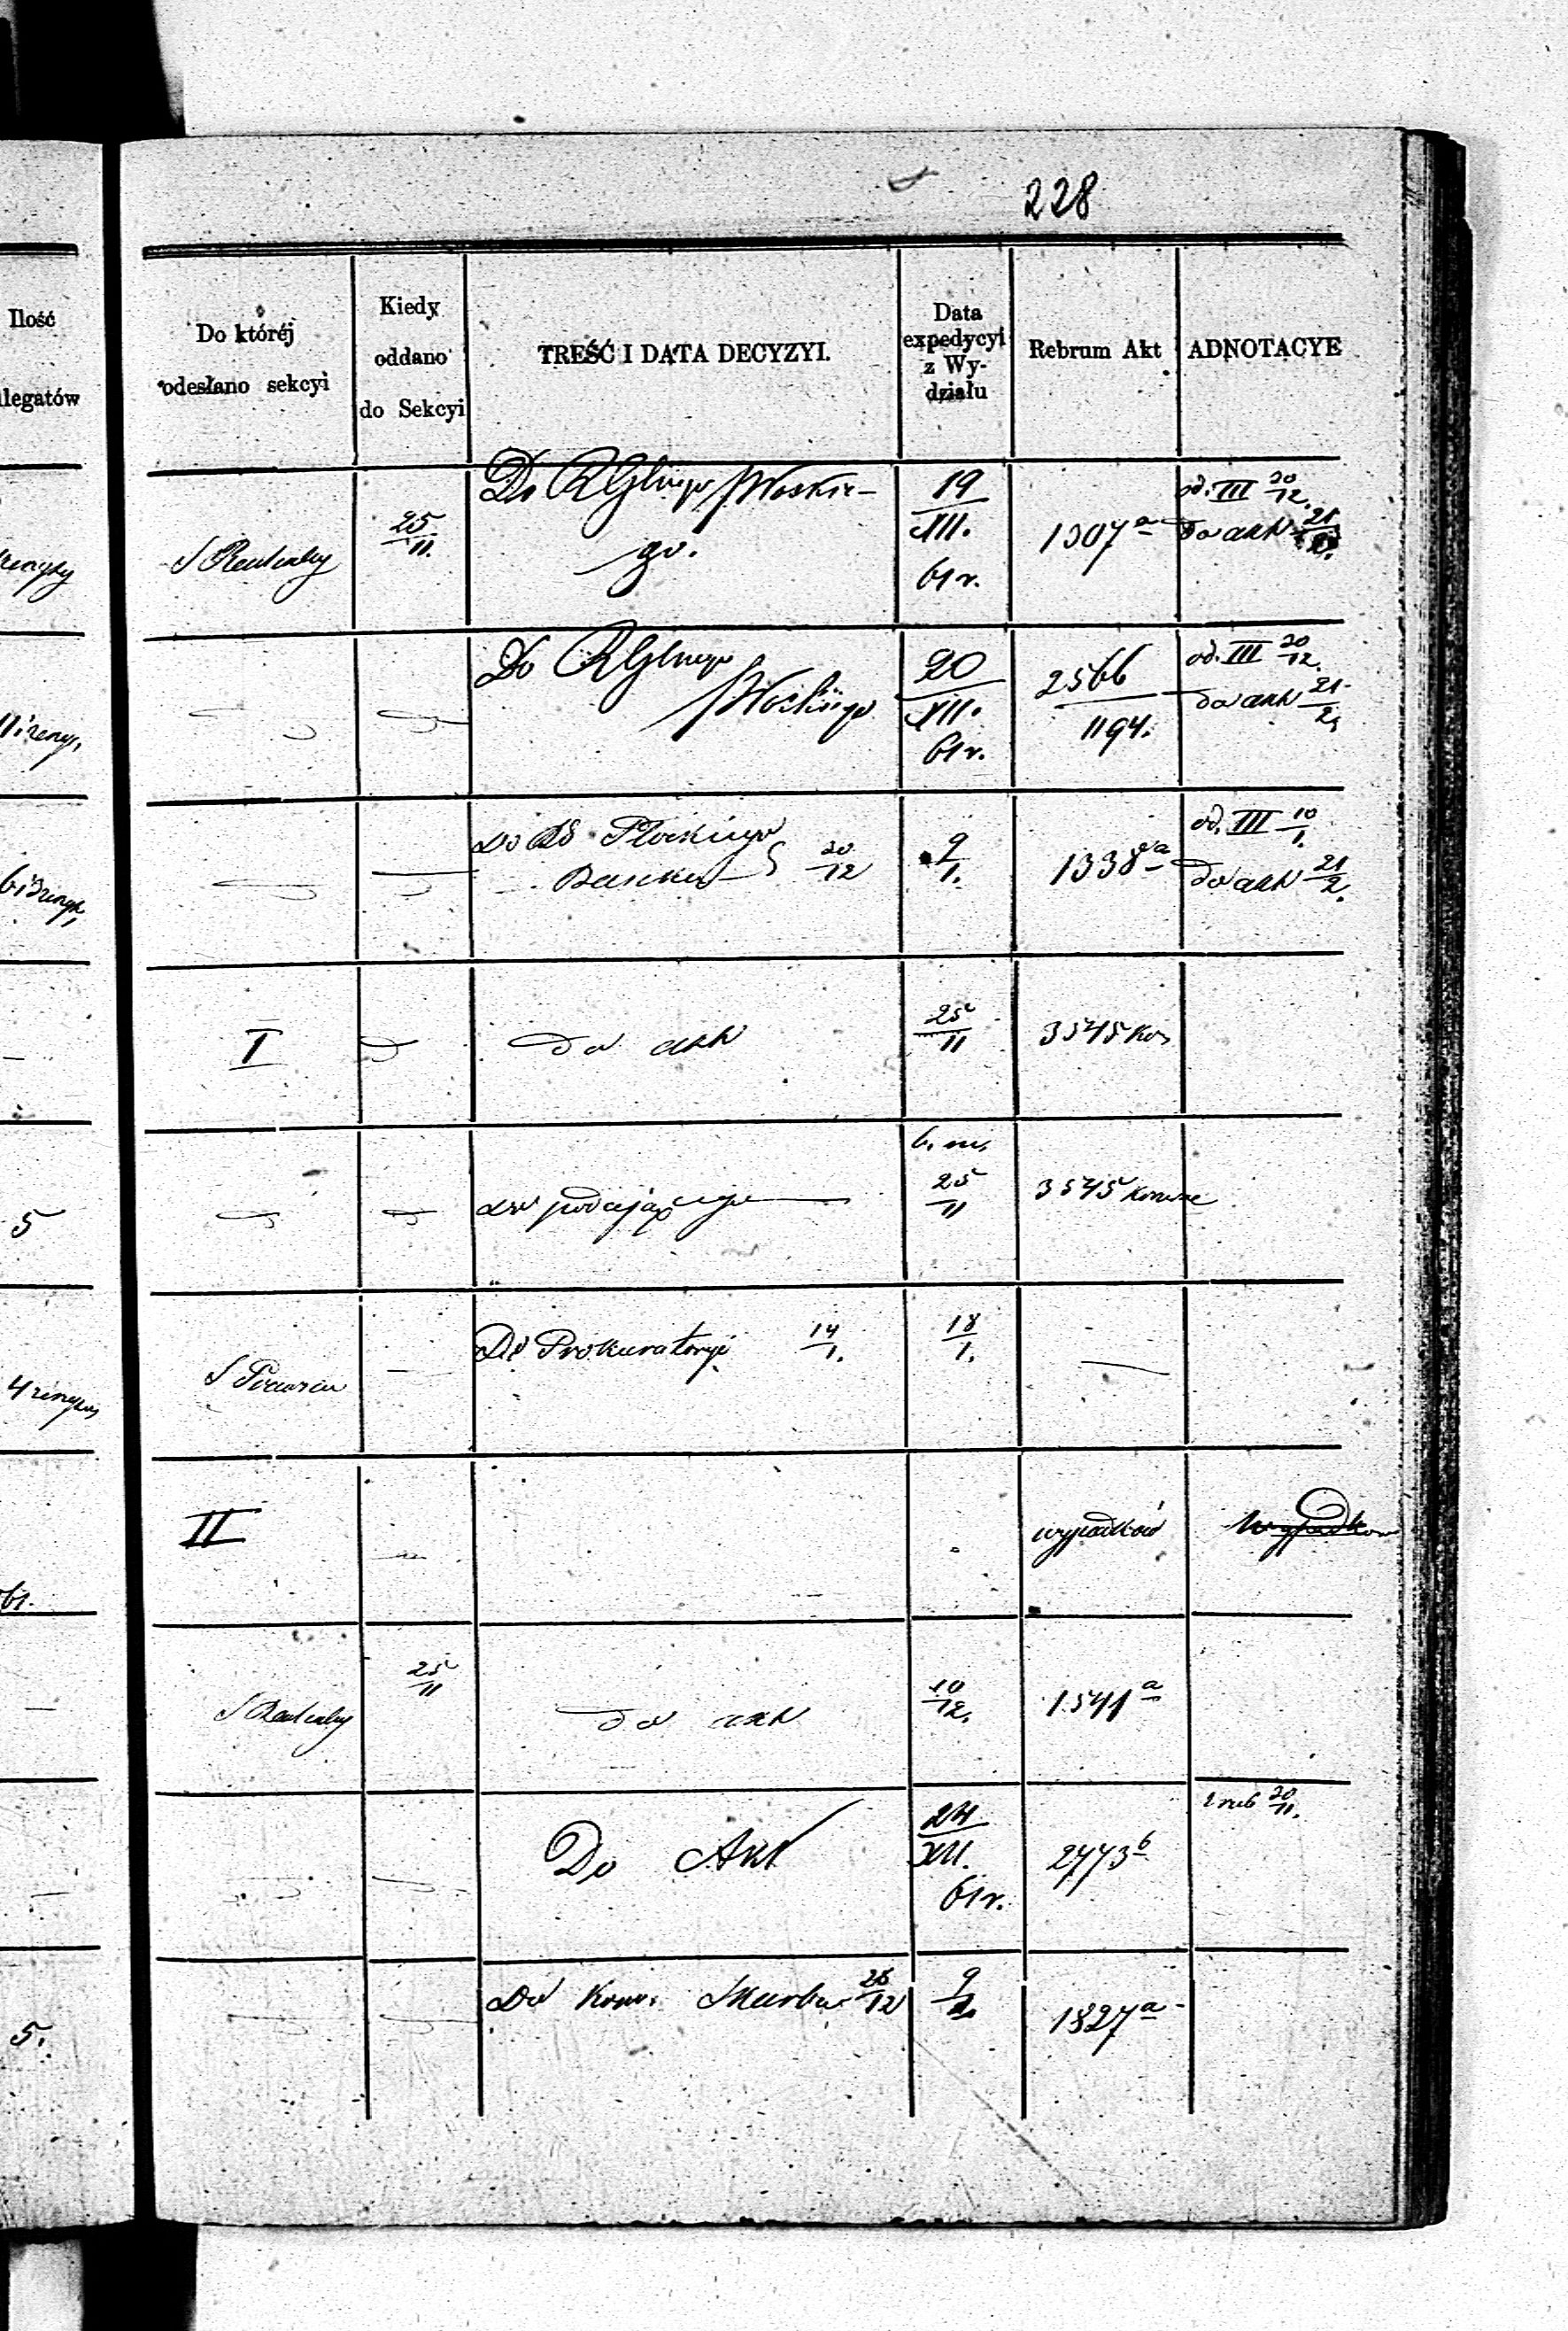 228
Ilość
llegatów
Do któréj
odesłano sekcyi
Kiedy
oddano
do Sekcyi
TREŚĆ I DATA DECYZYI.
Data
expedycyi
z Wy-
działu
Rebrum Akt
ADNOTACYE
25/11.
Do RGlnego
go.
19/XII.
61 r.
1307 a
od. III 20/12.
do akt 21/2.
Do RGlnego
20/XII.
61 r.
2566/1194.
od. III 20/12.
do akt 21/2
Do Płockiego 20/12
9/1.
1338 a
od. III 10/1.
do akt 21/2.
I
do akt
25/11
3545 Kom
5
do podającego
b. m.
25/11
3545 Komme
4
S Prawna
Do Prokuratoryi 14/1.
18/1.
II
wypadków
wypadków
61.
25/11
do akt
10/12.
1541 a
Do Akt
24/XII.
61 r.
2773 b
20/11.
5.
Do Kom. Skarbu 28/12
9/1
1827 a